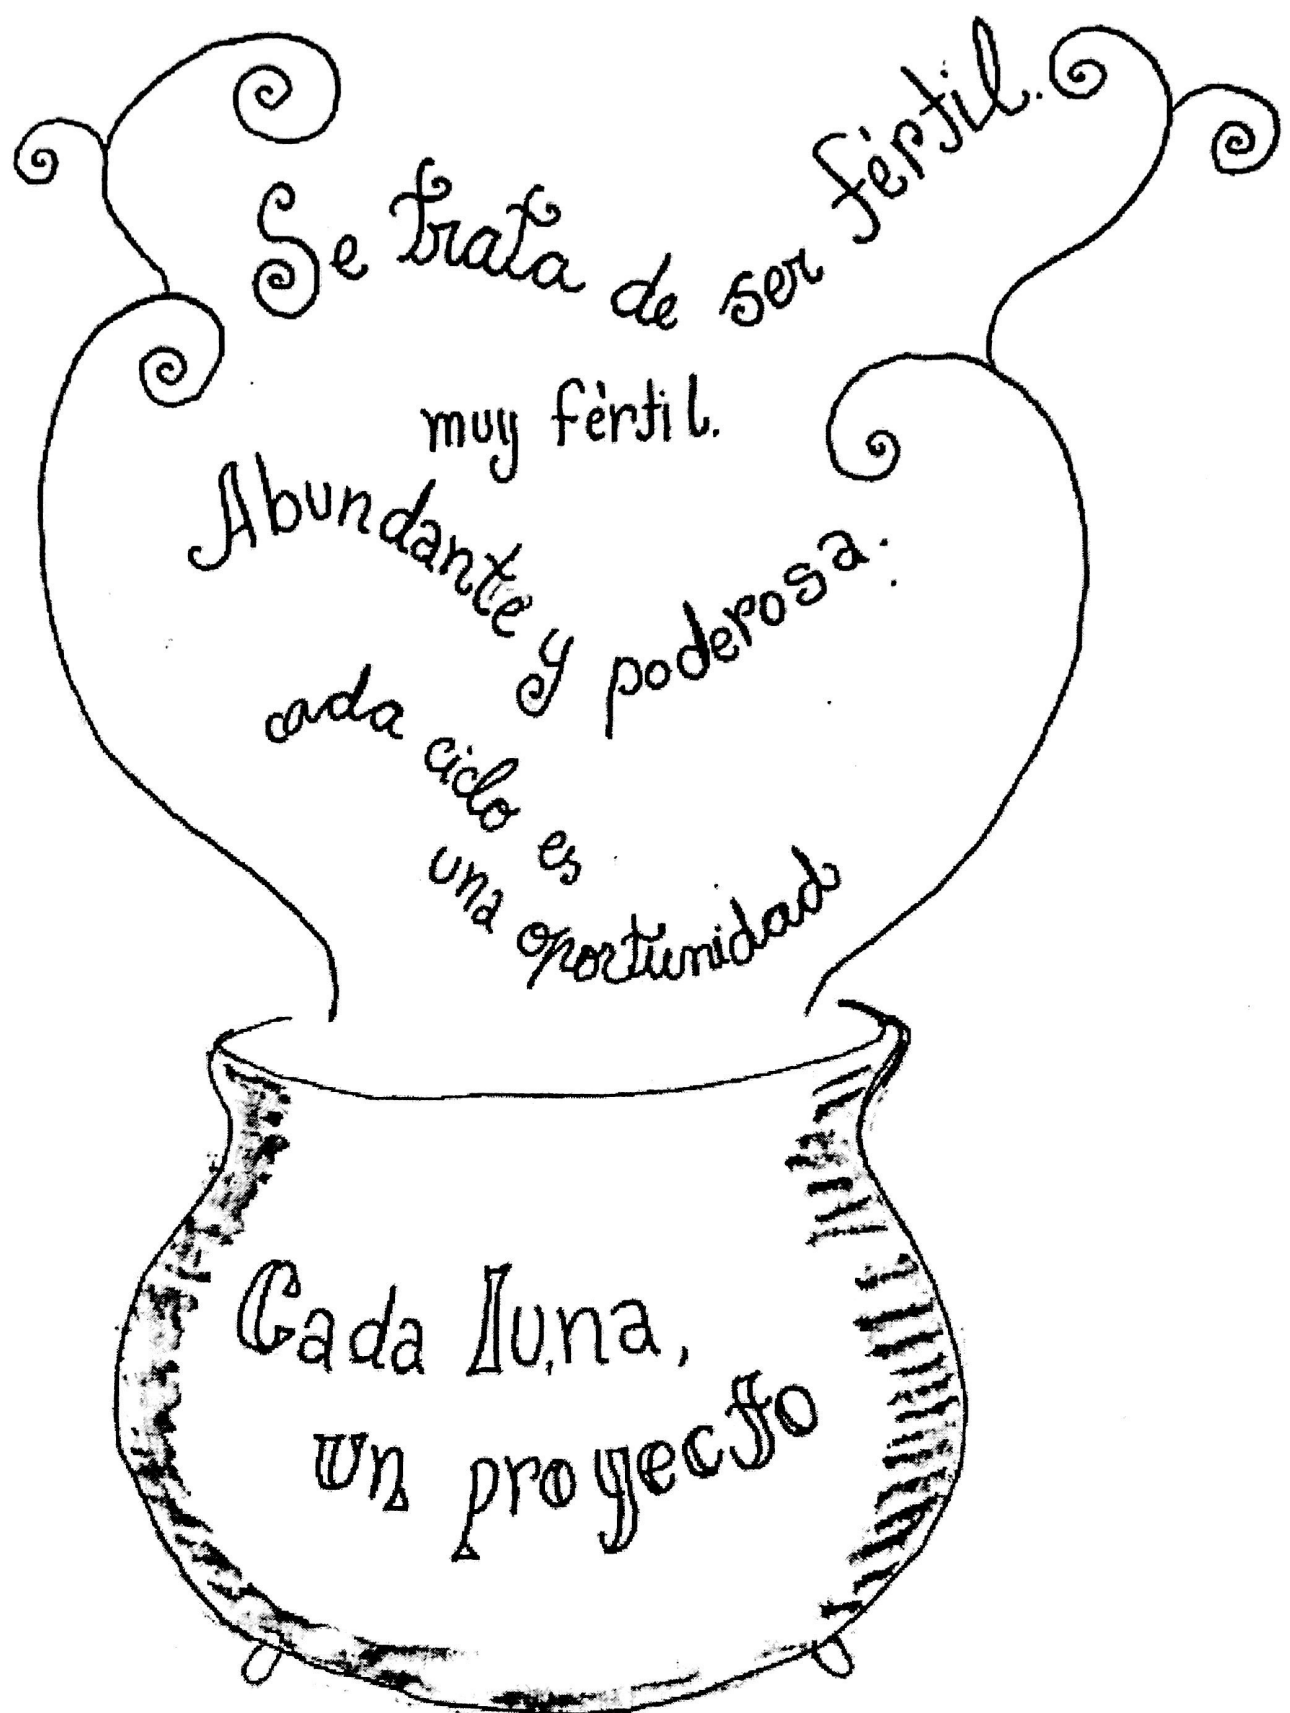 Se trata de ser fértil.
muy fértil.
Abundante y poderosa:
cada ciclo es
una oportunidad
Cada luna,
un proyecto